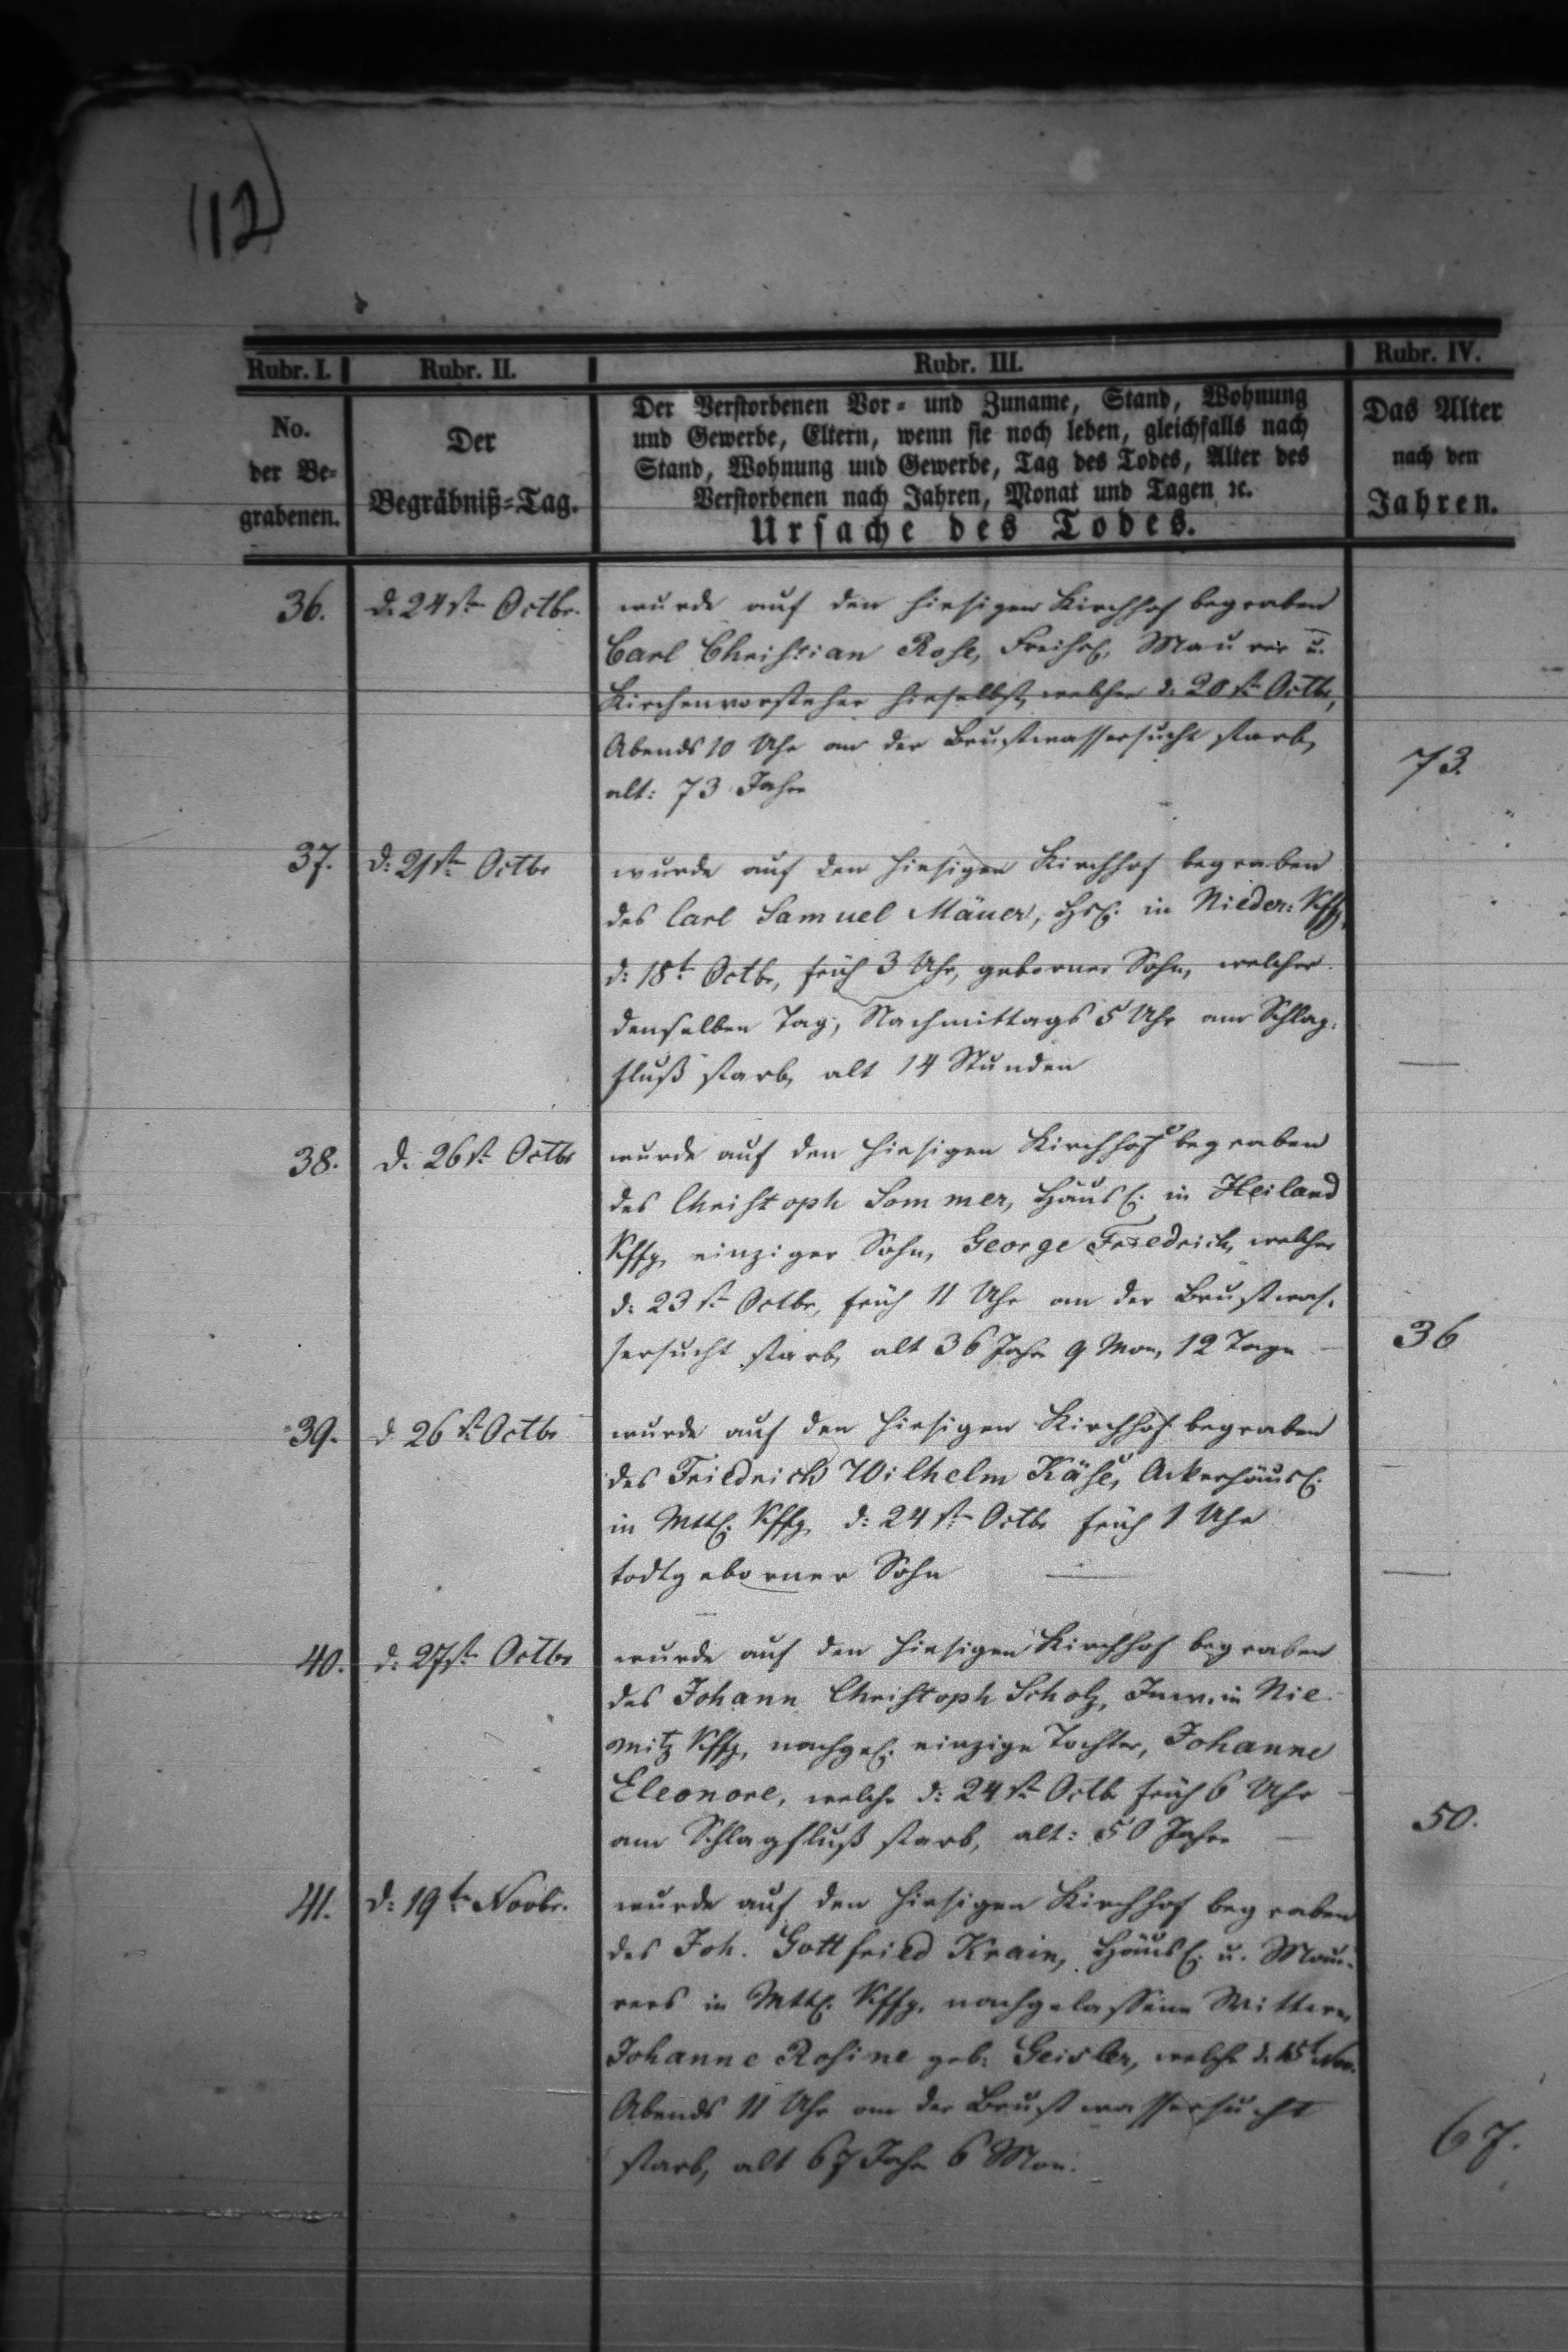 (12)
Rubr. I. Rubr. II. Rubr. III. Rubr. IV.
No.
der Be=
grabenen.
Der
Begräbniß=Tag.
Der Verstorbenen Vor= und Zuname, Stand, Wohnung
und Gewerbe, Eltern, wenn sie noch leben, gleichfalls nach
Stand, Wohnung und Gewerbe, Tag des Todes, Alter des
Verstorbenen nach Jahren, Monat und Tagen ꝛc.
Ursache des Todes.
Das Alter
nach den
Jahren.
36. d. 24st. Octbr. wurde auf den hiesigen Kirchhof begraben
Carl Christian Rose, Maurer u.
Kirchenvorsteher hieselbst, welcher d. 20st. Octb,
Abends 10 Uhr an der Brustwassersucht starb,
alt: 73 Jahre 73.
37. d: 21st. Octbr wurde auf den hiesigen Kirchhof begraben
des Carl Samuel Mäuer, in Nieder: Kffg,
d: 18t. Octbr, früh 3 Uhr, geborner Sohn, welcher
denselben Tag, Nachmittags 5 Uhr am Schlag-
fluß starb, alt 14 Stunden —
38. d. 26st. Octbr wurde auf den hiesigen Kirchhof begraben
des Christoph Sommer, Häusl. in Heiland
Kffg, einziger Sohn, George Friedrich, welcher
d: 23st. Octbr, früh 11 Uhr an der Brustwas-
sersucht starb, alt 36 Jahr 9 Mon, 12 Tage — 36
39. d 26st. Octbr wurde auf den hiesigen Kirchhof begraben
des Friedrich Wilhelm Käse, Ackerhäusl.
in Mttl. Kffg, d: 24st. Octbr früh 1 Uhr
todtgeborner Sohn — —
40. d: 27st. Octbr wurde auf den hiesigen Kirchhof begraben
des Johann Christoph Scholz, Inw. in Nie-
mitz Kffg, nachgel. einzige Tochter, Johanne
Eleonore, welche d: 24st. Octb früh 6 Uhr
am Schlagfluß starb, alt: 50 Jahre — 50.
41. d: 19t. Novbr. wurde auf den hiesigen Kirchhof begraben
des Joh. Gottfried Krain, Häusl. u. Mau-
rers in Mttl. Kffg. nachgelassene Wittwe,
Johanne Rosine geb. Geisler, welche d. 15t Nov.
Abends 11 Uhr an der Brustwassersucht
starb, alt 67 Jahr 6 Mon. 67.